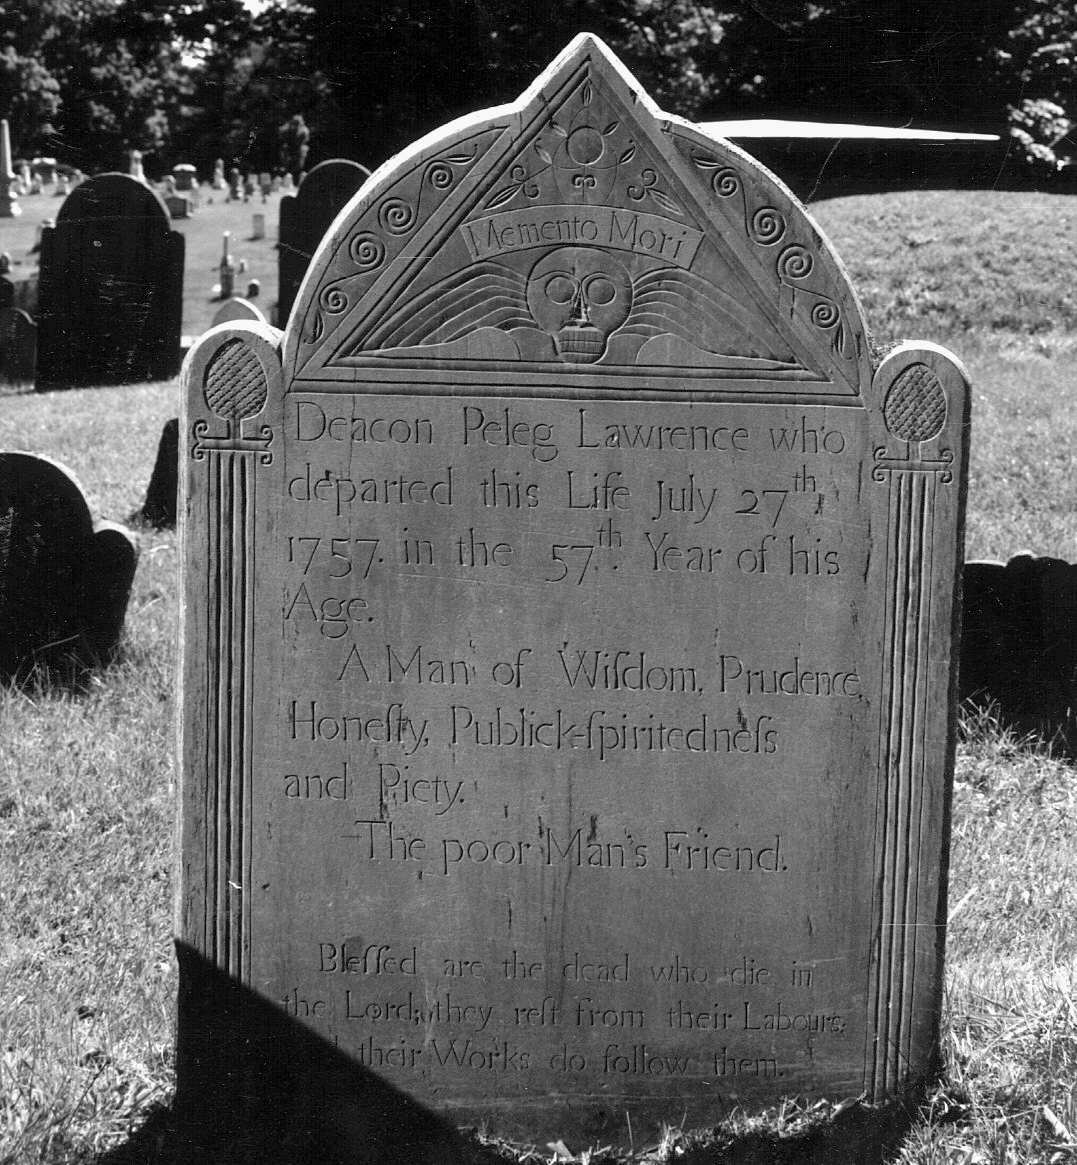 Memento Mori
Deacon Peleg Lawrence who
departed this Life July 27th
1757. in the 57th. Year of his
Age.
A Man of Wiſdom, Prudence,
Honeſty, Publick-ſpiritedneſs
and Piety.
The poor Man's Friend.
Bleſſed are the dead who die in
the Lord; they reſt from their Labours;
their Works do follow them.